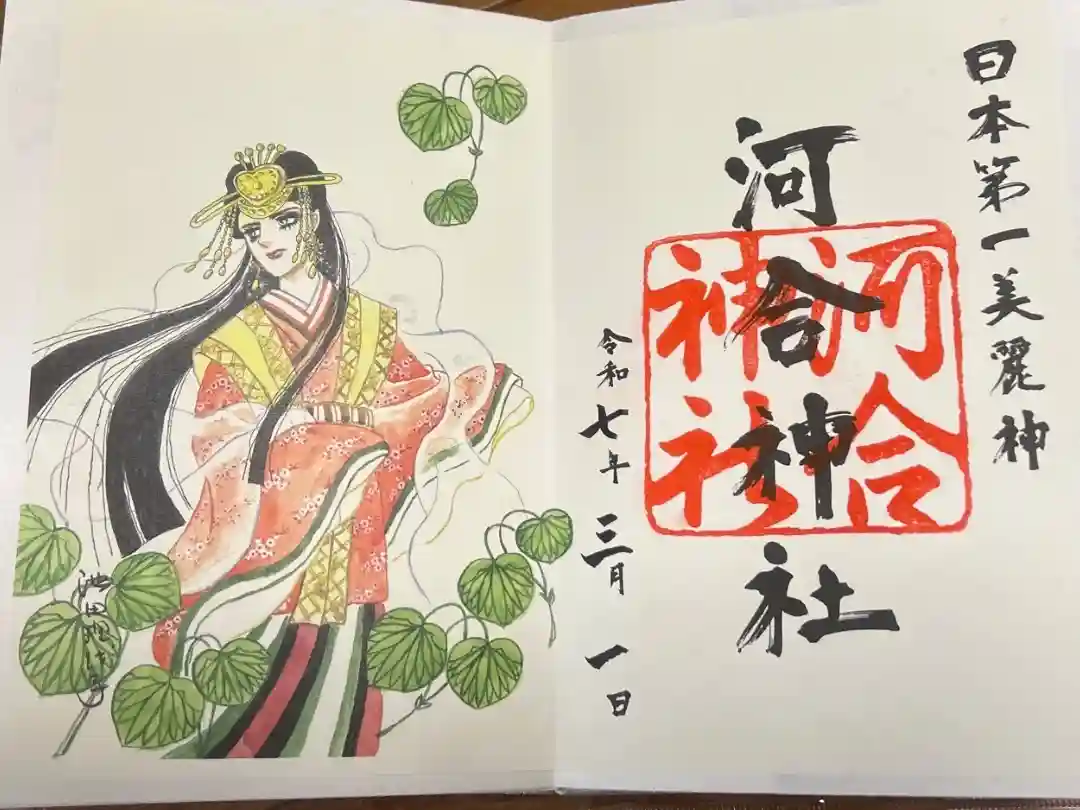 日本第一美麗神
河合神社
河合
神社
令和七年三月一日
池田理代子